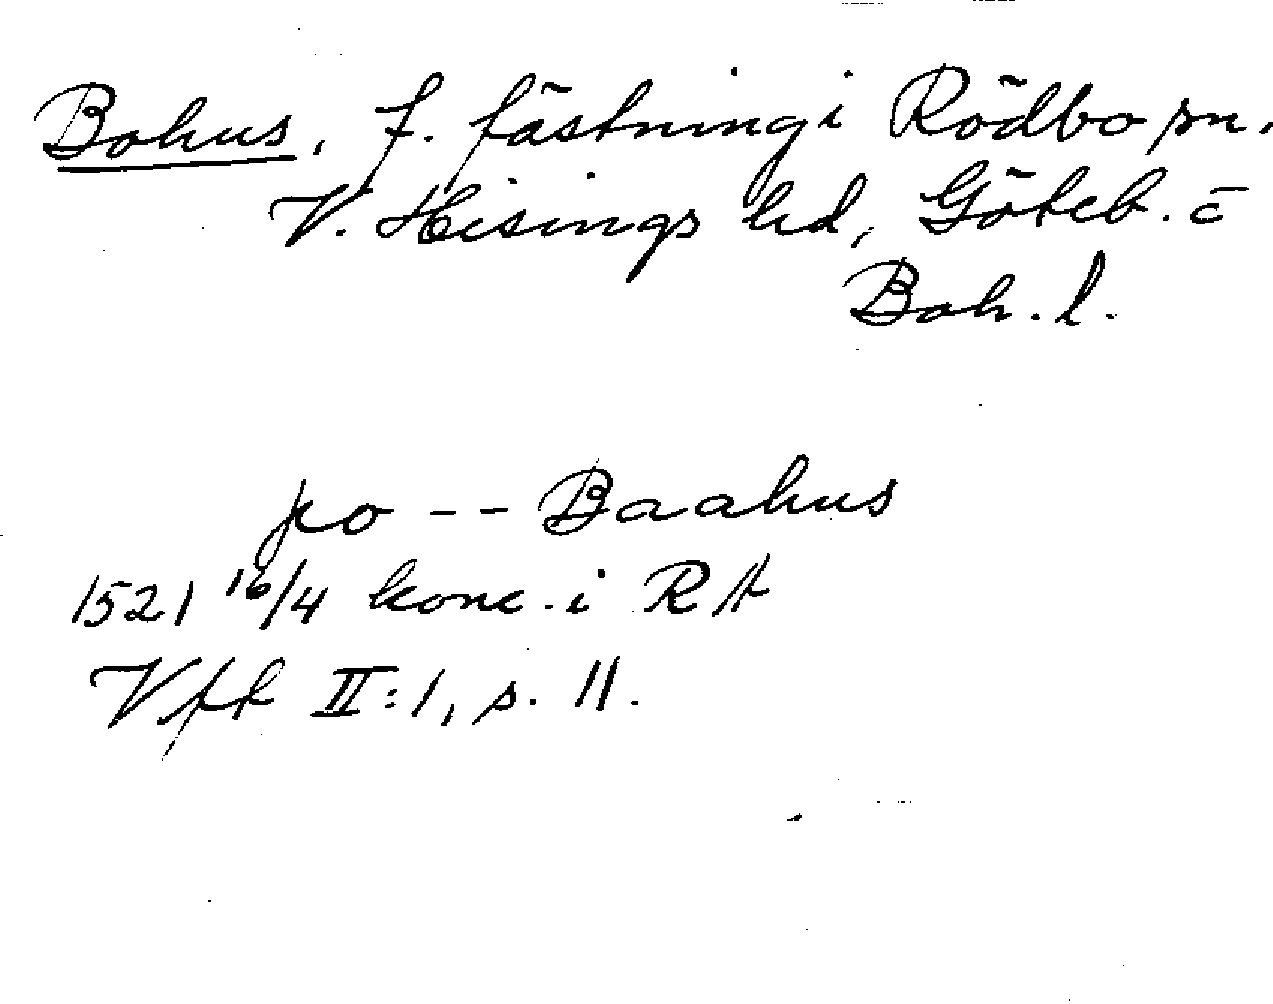 Bohus, f. fästning i Rödbo sn.
V. Hisings hd, Göteb. o
Boh. l.
po -- Baahus
1521 16/4 konc. i RA
Vfk II:1, s. 11.